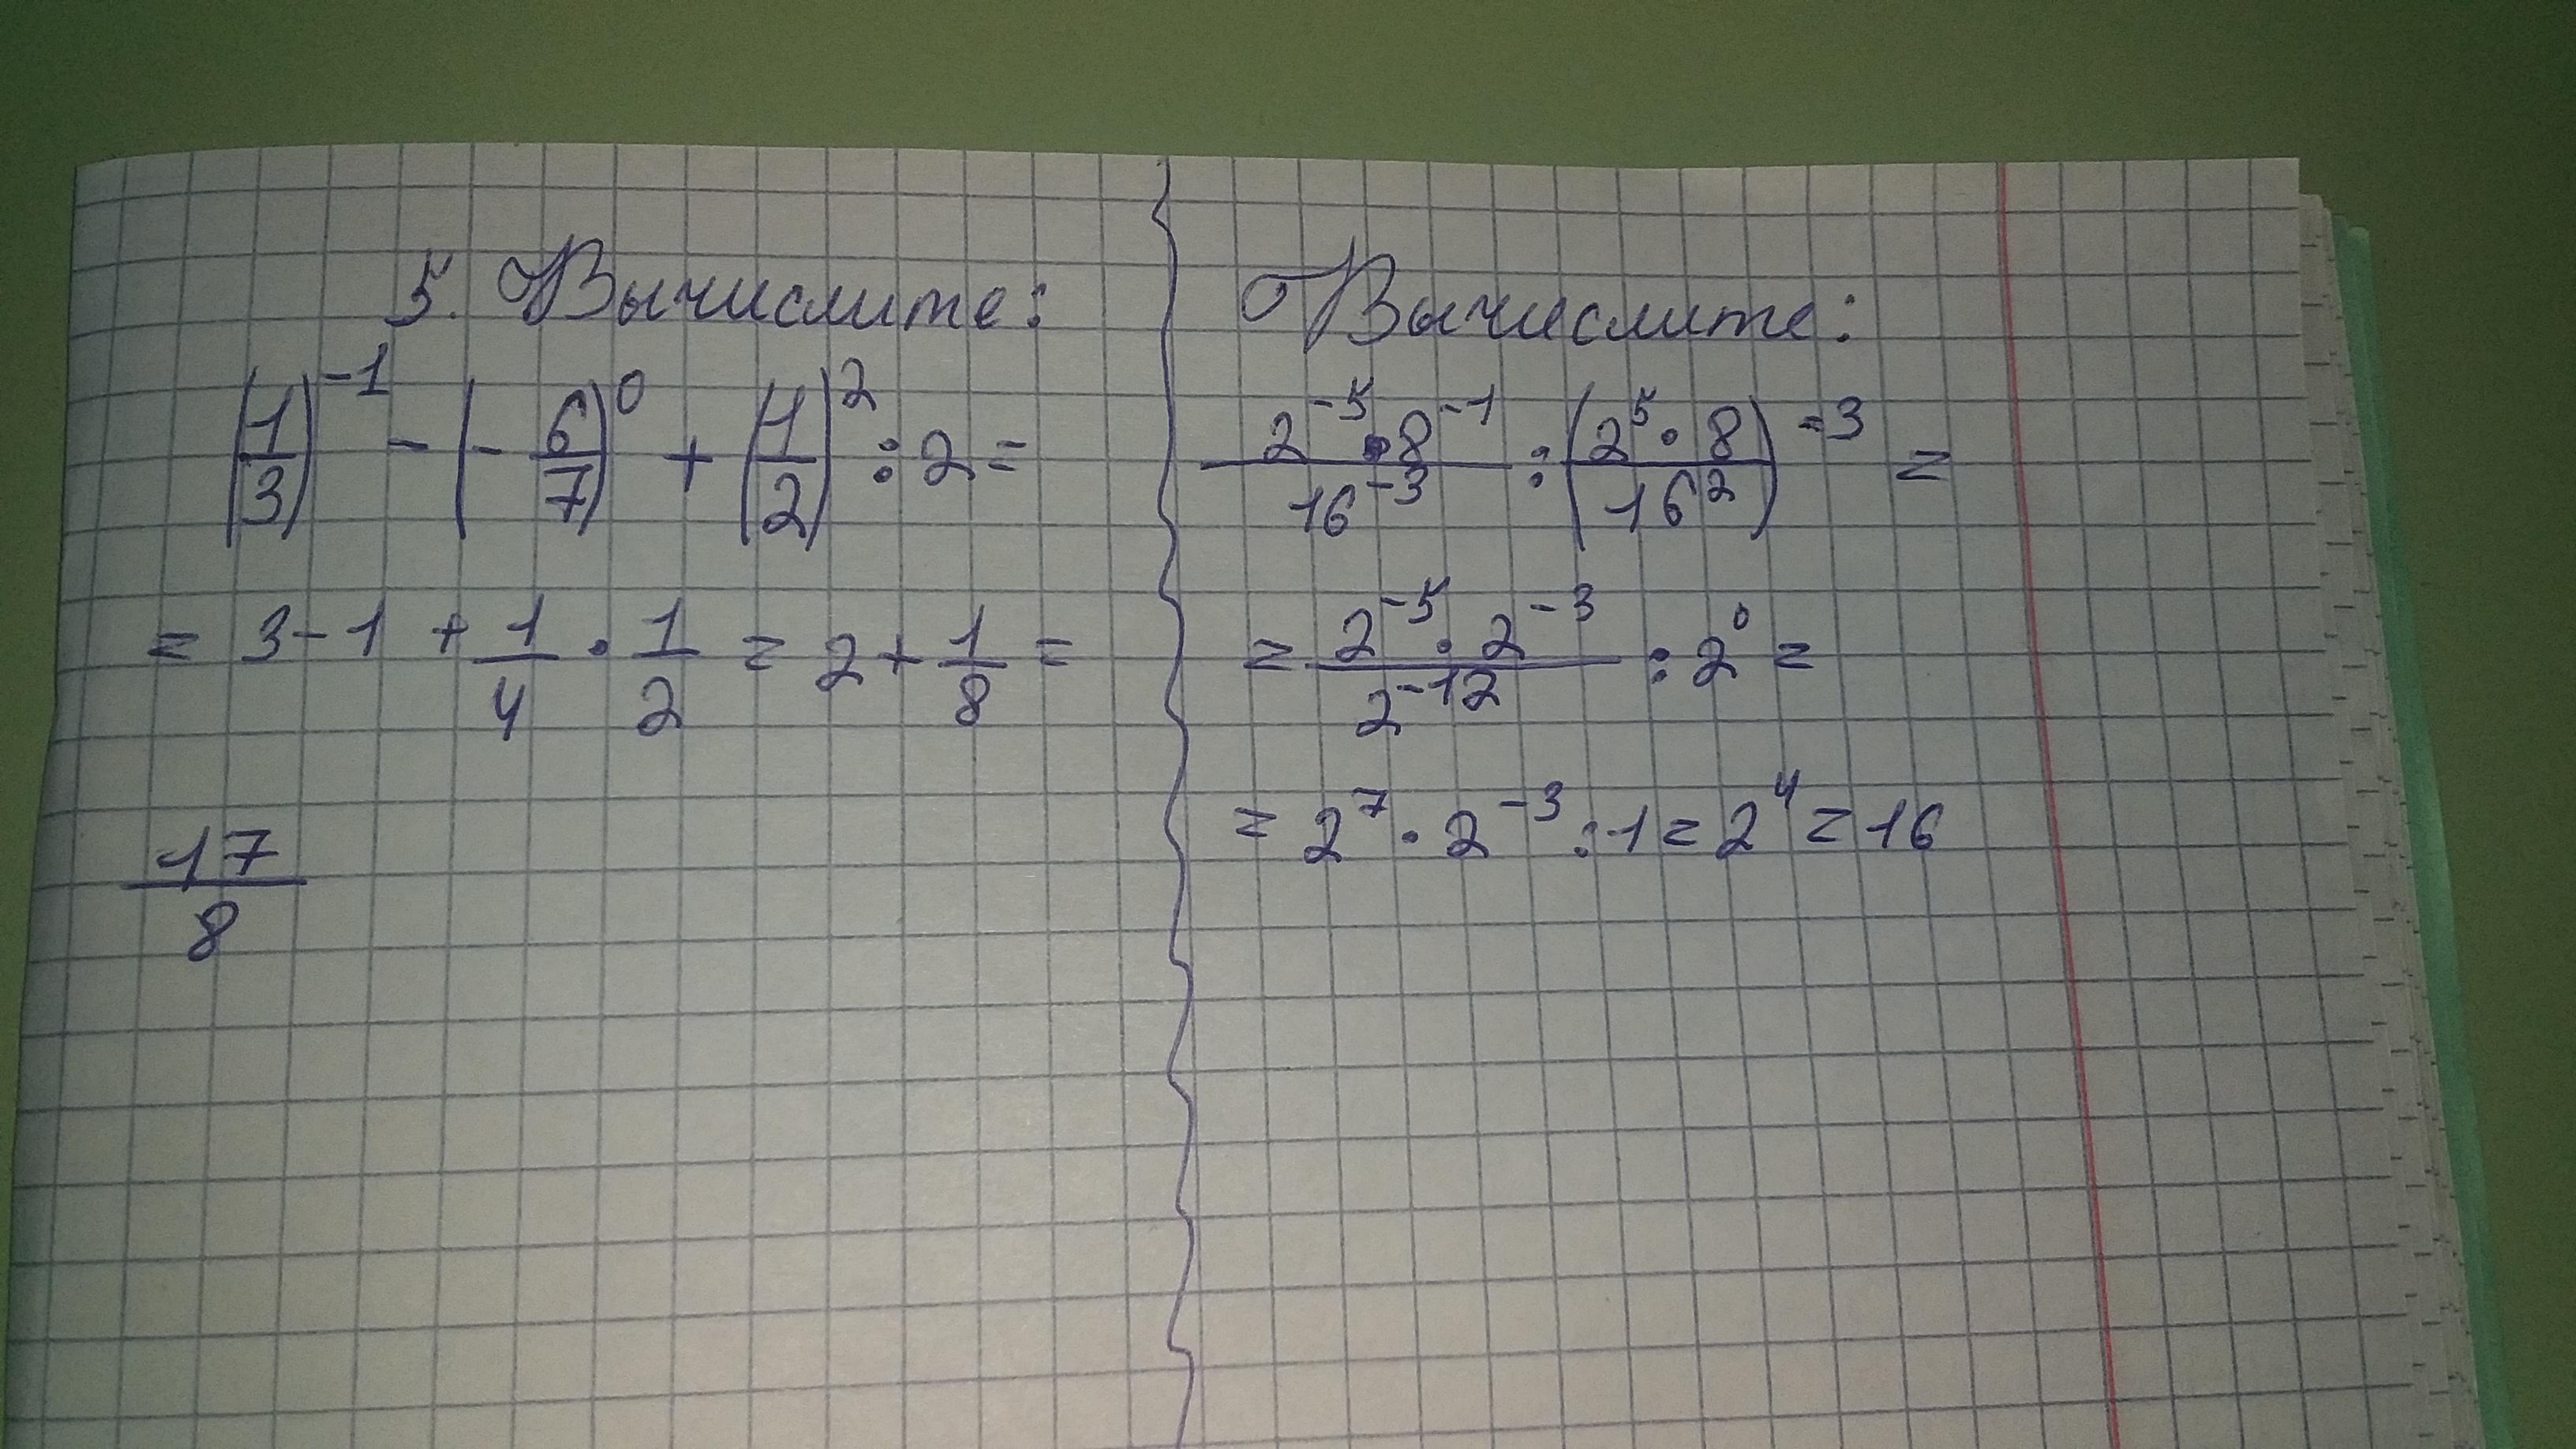 5. Вычислите:
(1/3)^-1 - (-6/7)^0 + (1/2)^2 : 2 =
= 3 - 1 + 1/4 · 1/2 = 2 + 1/8 =
17/8
Вычислите:
2^-5 · 8^-1 / 16^-3 : (2^5 · 8 / 16^2)^-3 =
= 2^-5 · 2^-3 / 2^-12 : 2^0 =
= 2^7 · 2^-3 : 1 = 2^4 = 16